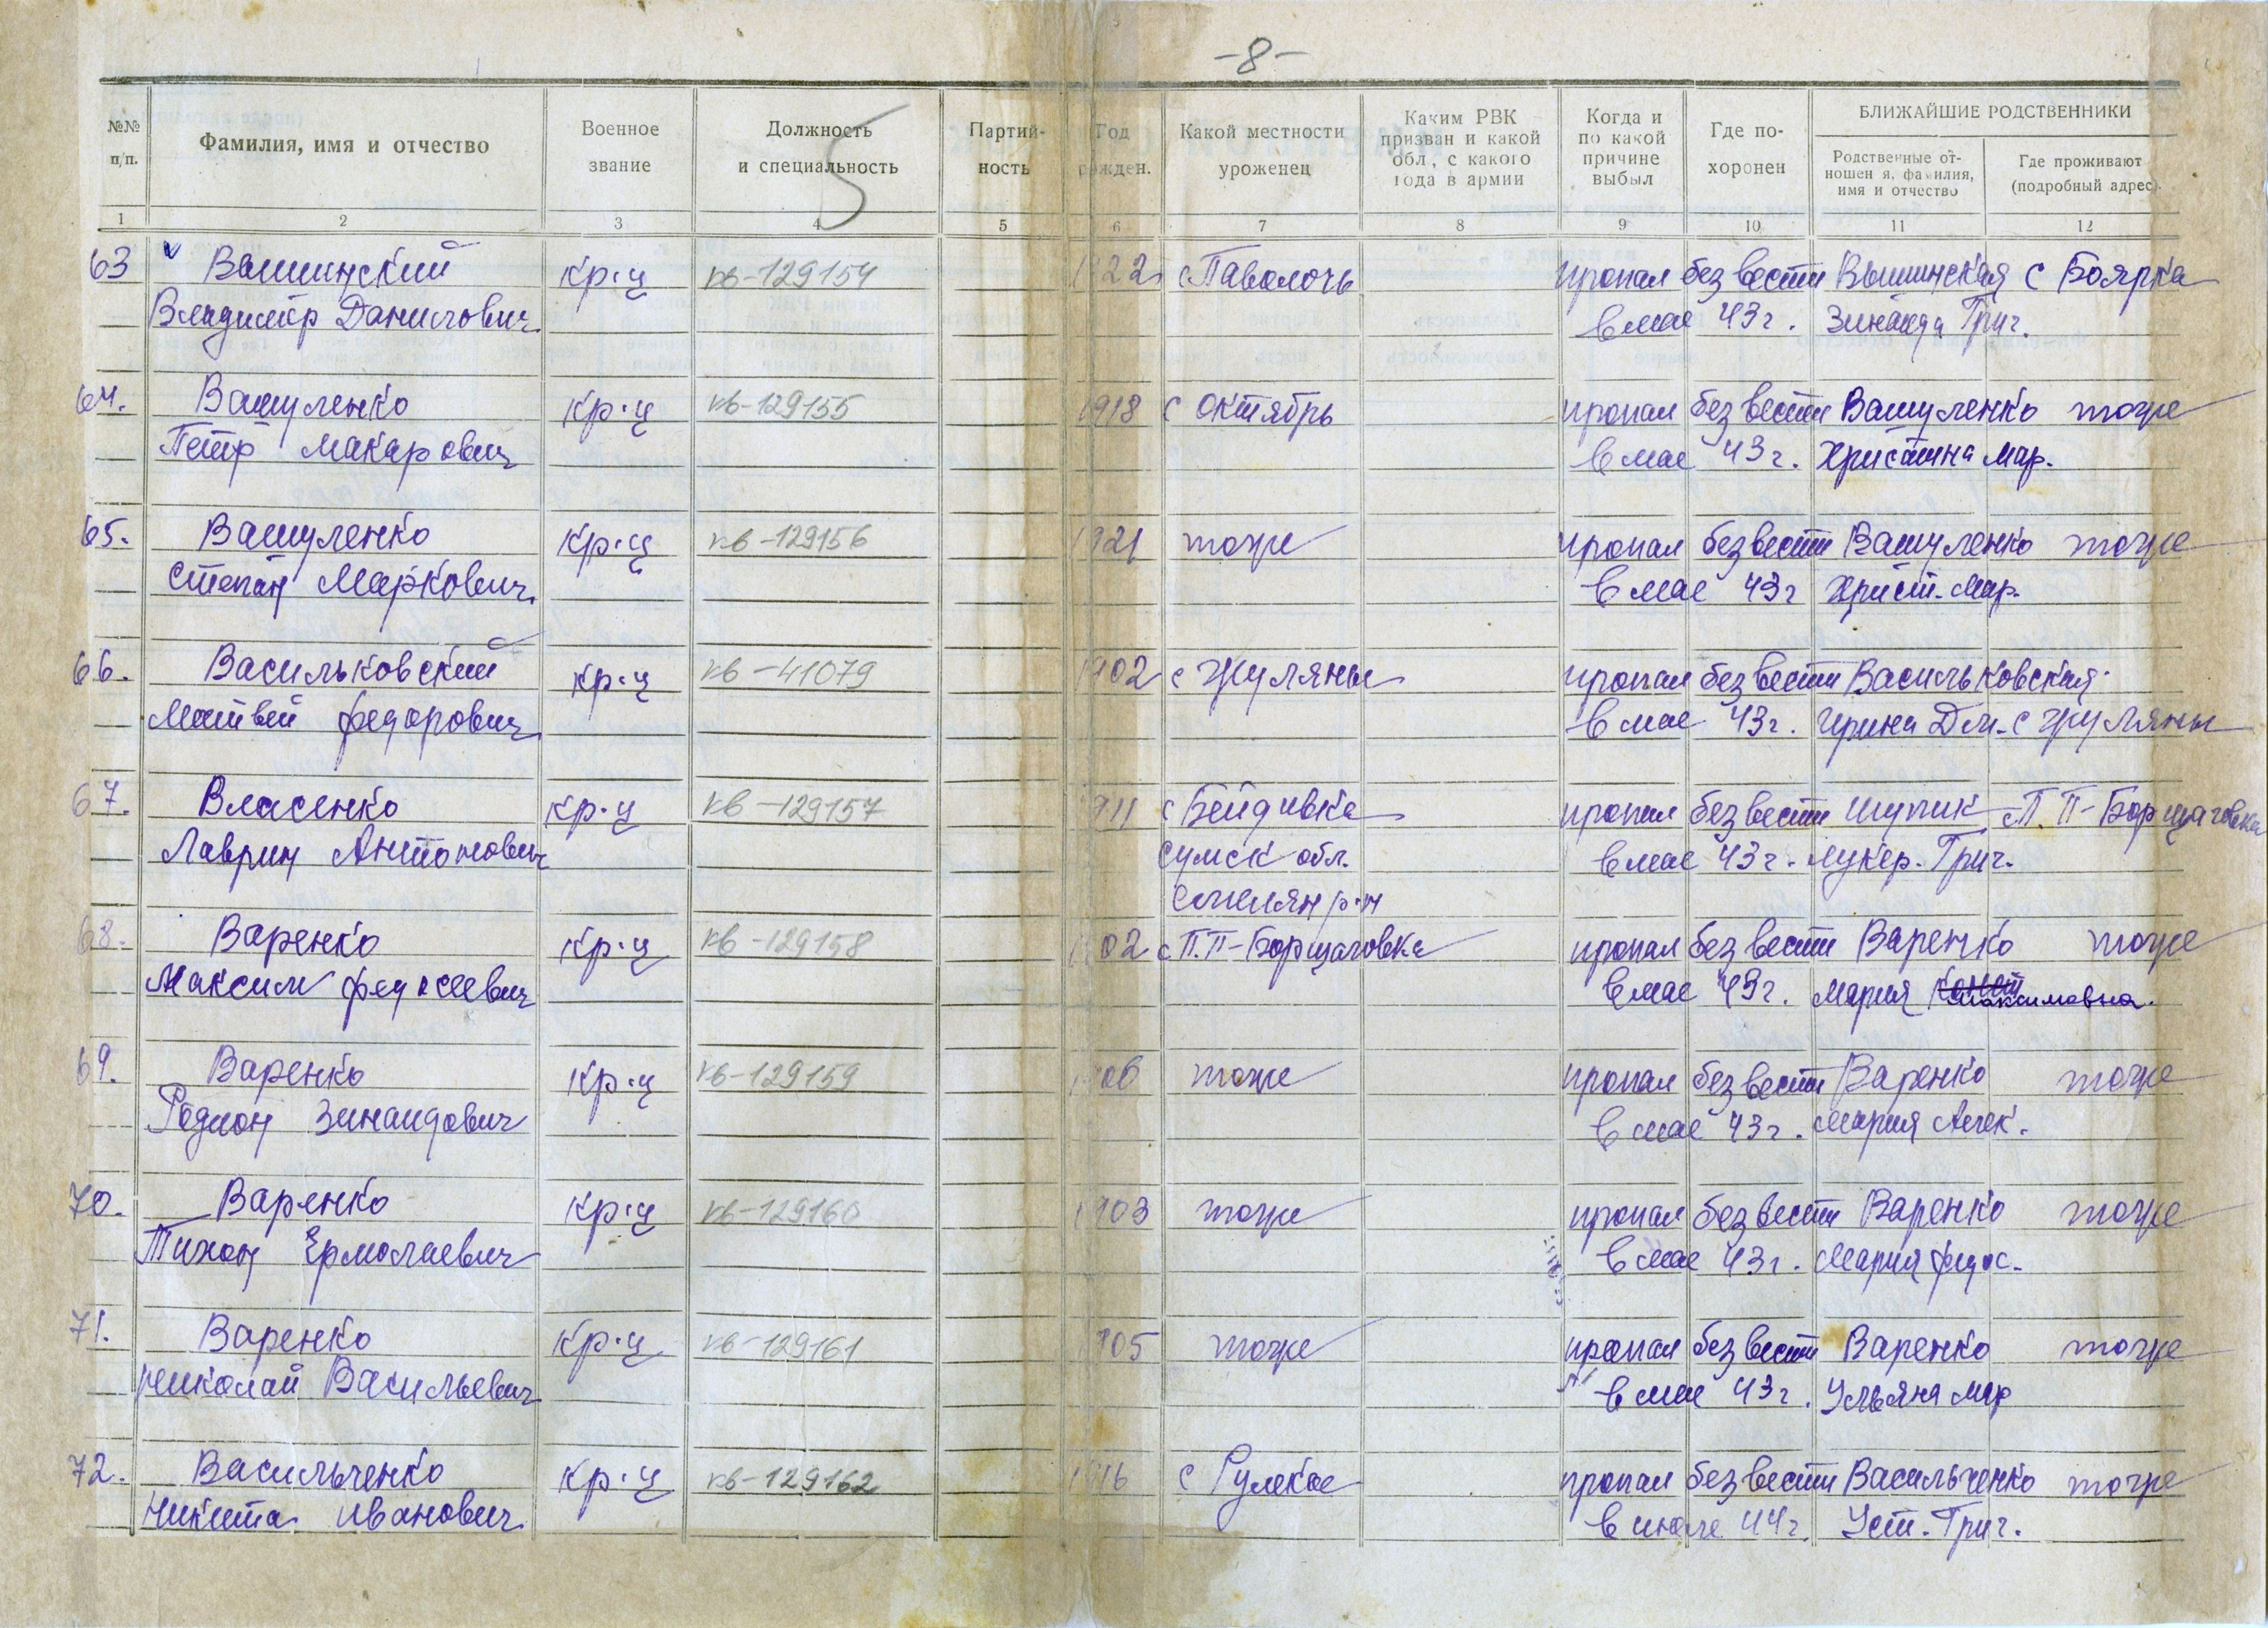 -8-
№№ п/п.
Фамилия, имя и отчество
Военное звание
Должность и специальность
5
Партий- ность
Год рожден.
Какой местности уроженец
Каким РВК призван и какой обл, с какого года в армии
Когда и по какой причине выбыл
Где по- хоронен
БЛИЖАЙШИЕ РОДСТВЕННИКИ
Родственные от- ношен я, фамилия, имя и отчество
Где проживают (подробный адрес).
1 2 3 4 5 6 7 8 9 10 11 12
63 Вышинский кр-ц кв-129154 1922 с Паволочь пропал без вести Вышинская с Боярка
Владимир Данилович в мае 43г. Зинаида Григ.
64. Вашуленко кр-ц кв-129155 1918 с Октябрь пропал без вести Вашуленко тоже
Петр Макарович в мае 43г. Христина Мар.
65. Вашуленко кр-ц кв-129156 1921 тоже пропал без вести Вашуленко тоже
Степан Маркович. в мае 43г Христ. Мар.
66. Васильковский кр-ц кв-41079 1902 с Жуляны пропал без вести Васильковская
Матвей Федорович в мае 43г. Ирина Дм. с Жуляны
67. Власенко кр-ц кв-129157 1911 с пропал без вести Шупик с П.П-Борщаговка
Лаврин Антонович Сумск обл. в мае 43г. Лукер. Григ.
р-н
68. Варенко кр-ц кв-129158 1902 с П.П-Борщаговка пропал без вести Варенко тоже
Максим Федосеевич в мае 43г. Мария Максимовна.
69. Варенко кр-ц кв-129159 1906 тоже пропал без вести Варенко тоже
Родион Зинаидович в мае 43г. Мария Алек.
70. Варенко кр-ц кв-129160 1903 тоже пропал без вести Варенко тоже
Тихон Ермолаевич в мае 43г. Мария Федос.
71. Варенко кр-ц кв-129161 1905 тоже пропал без вести Варенко тоже
Николай Васильевич в мае 43г. Ульяна Мар
72. Васильченко кр-ц кв-129162 1916 с пропал без вести Васильченко тоже
Никита Иванович в июле 44г. Уст. Григ.